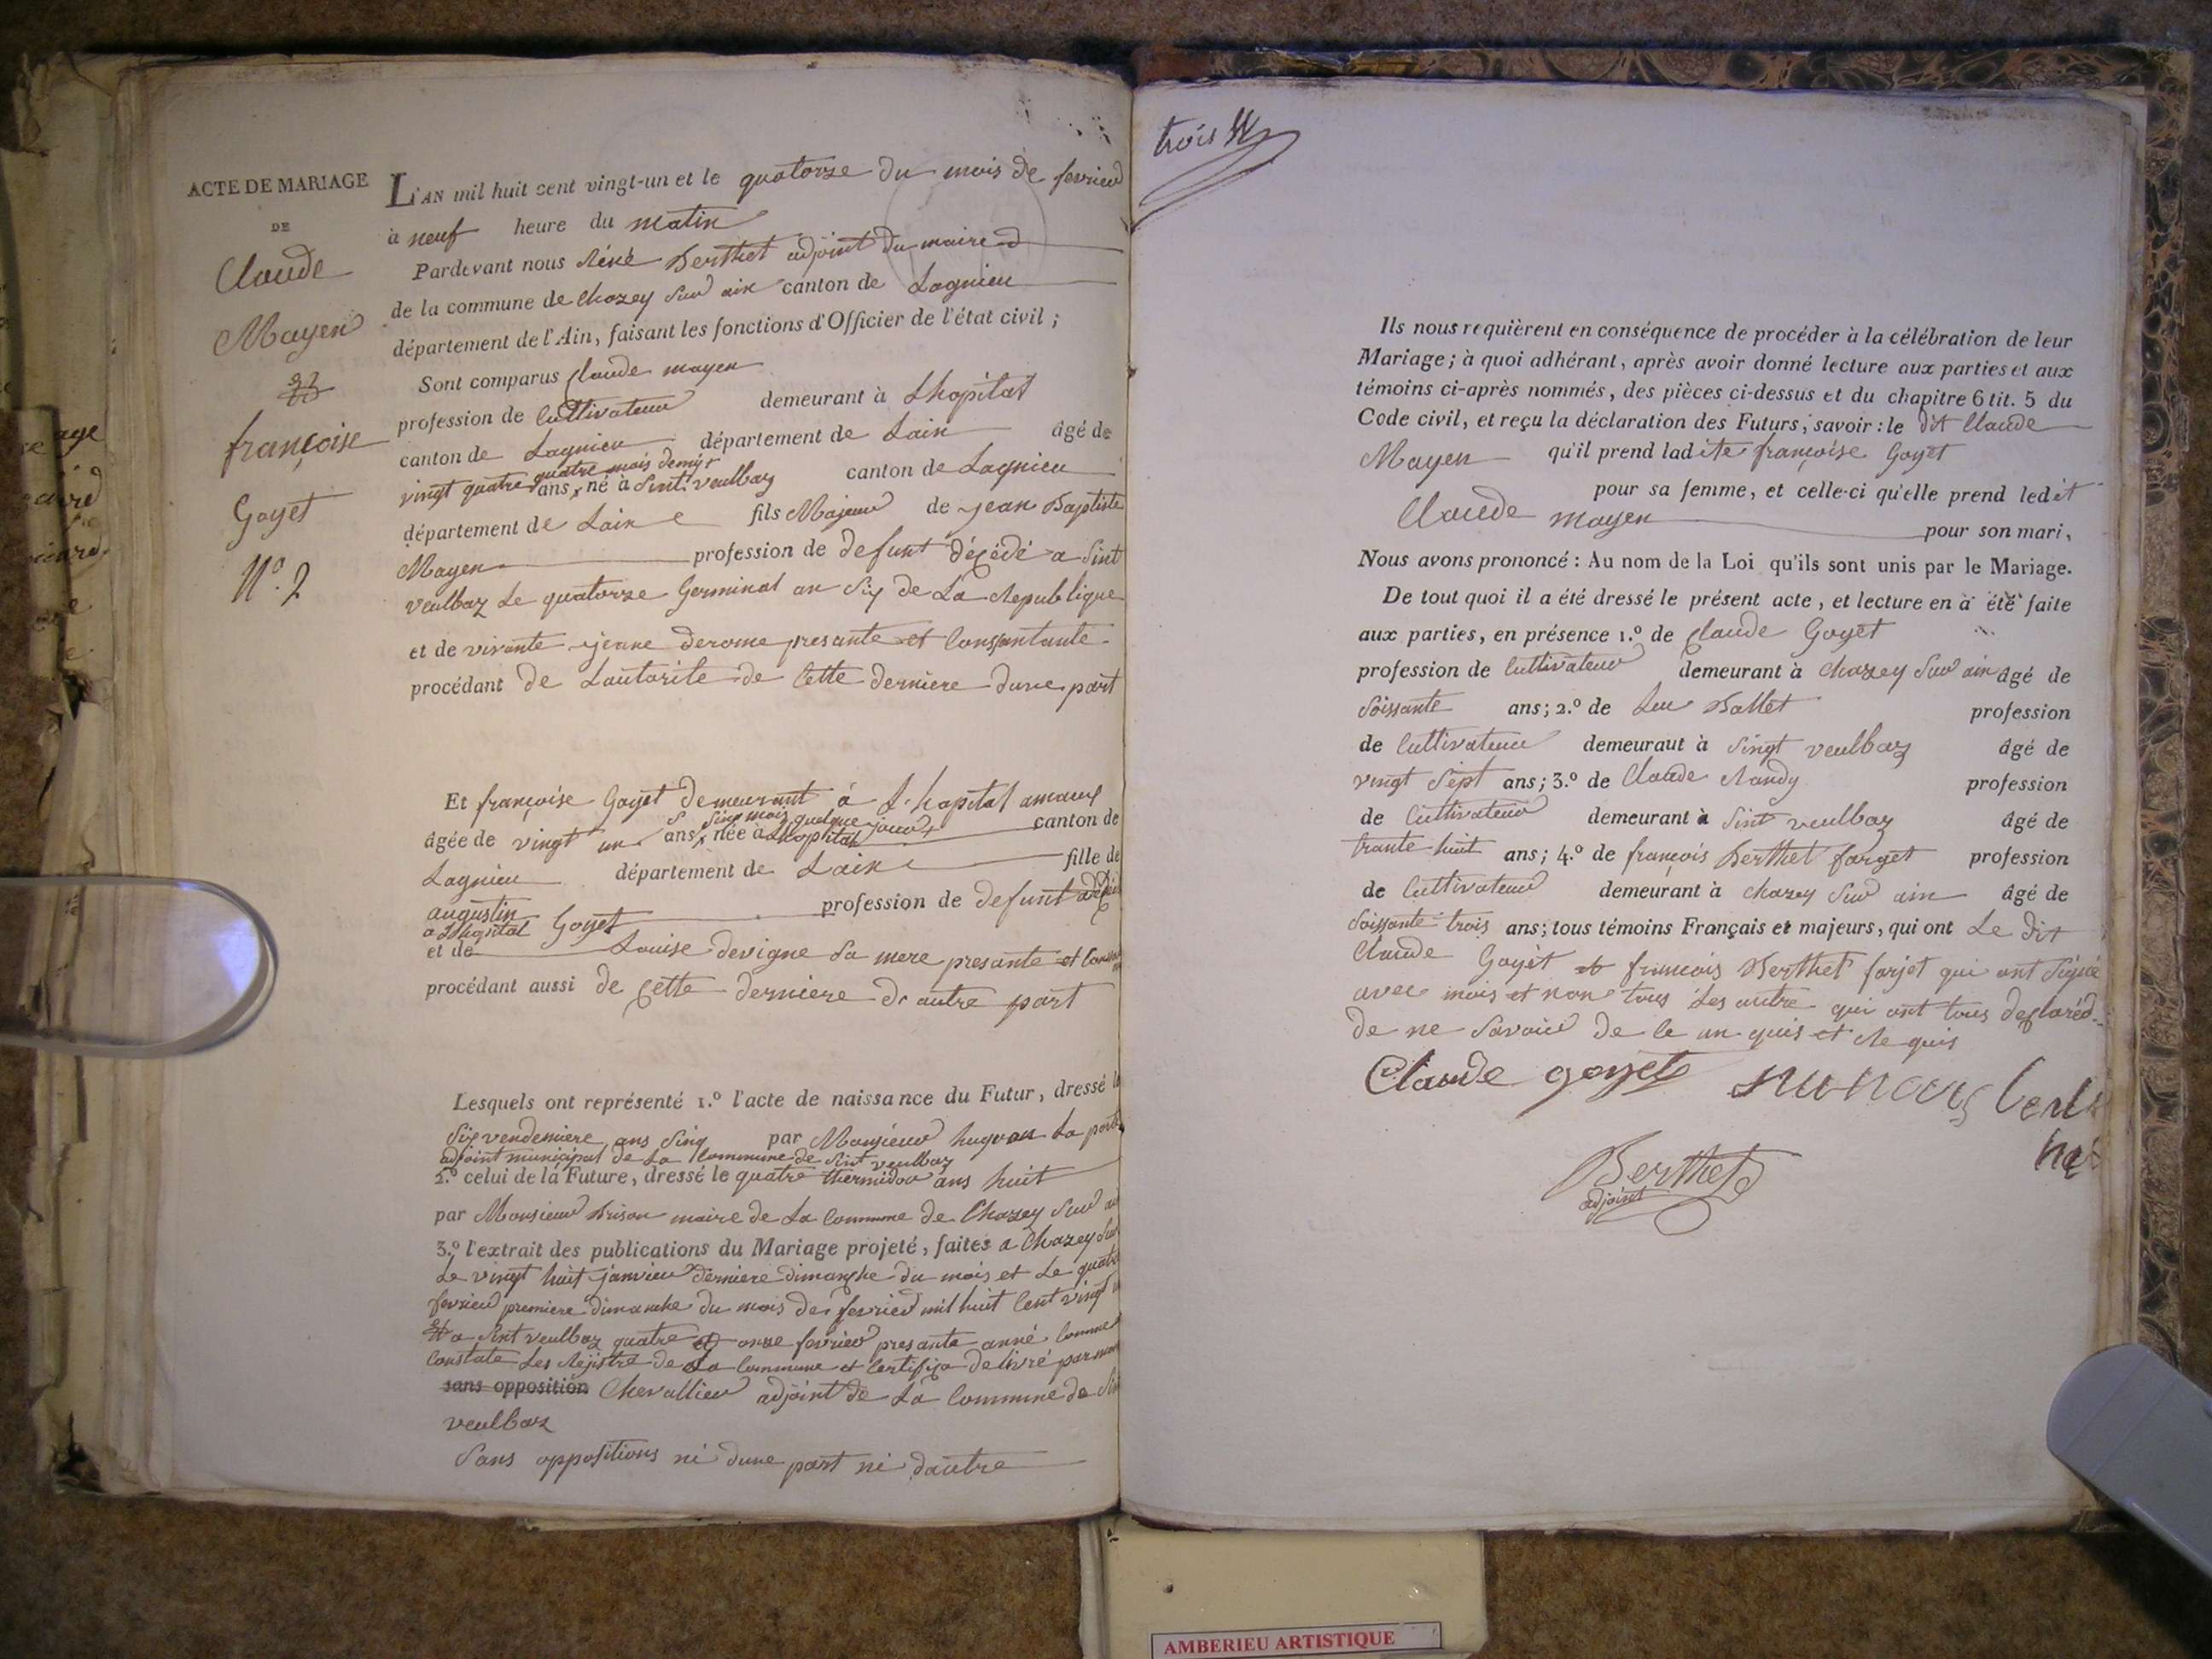 ACTE DE MARIAGE
DE
Claude
Mayen
et
françoise
Goyet
N.º 2
L'AN mil huit cent vingt-un et le quatorze du mois de fevrier
à neuf heure du matin
Pardevant nous Réné Berthet adjoint du maire
de la commune de Chazey sur ain canton de Lagnieu
département de l'Ain, faisant les fonctions d'Officier de l'état civil ;
Sont comparus Claude mayen
profession de Cultivateur demeurant à Lhopital
canton de Lagnieu département de Lain âgé de
quatre mois demis
vingt quatre ans, né à Sint veulbaz canton de Lagnieu
département de Lain fils Majeur de jean Baptiste
Mayen profession de defunt décédé a Sint
veulbaz Le quatorze Germinal an Six de La Republique
et de vivante jeane derome presante et Consantante
procédant de Lautorite de Cette derniere dune part
Et françoise Goyet demeurant á L'hopital
Sinq mois quelque jour
âgée de vingt un ans, née à Lhopital canton de
Lagnieu département de Lain fille de
augustin Goyet profession de defunt
a Lhopital
et de Louise devigne Sa mere presante et
procédant aussi de Cette derniere d'autre part
Lesquels ont représenté 1.º l'acte de naissance du Futur, dressé le
Six vendemiere ans Sinq par Monsieur hugon La
adjoint municipal de La Commune de Sint veulbaz
2.º celui de la Future, dressé le quatre thermidor ans huit
par Monsieur Brison maire de La Commune de Chazey Sur
3.º l'extrait des publications du Mariage projeté, faites a Chazey Sur
Le vingt huit janvier derniere dimanche du mois et Le quatre
fevrier premiere dimanche du mois de fevrier mil huit Cent vingt
et a Sint veulbaz quatre et onze fevrier presante anné Comme
Constate Les Rejistre de La Commune et Certifiga delivré par
sans opposition Chevallier adjoint de La Commune de
veulbaz
Sans oppositions ni dune part ni dautre
trois
Ils nous requièrent en conséquence de procéder à la célébration de leur
Mariage ; à quoi adhérant, après avoir donné lecture aux parties et aux
témoins ci-après nommés, des pièces ci-dessus et du chapitre 6 tit. 5 du
Code civil, et reçu la déclaration des Futurs, savoir : le dit Claude
Mayen qu'il prend ladite françoise Goyet
pour sa femme, et celle-ci qu'elle prend ledit
Claude mayen pour son mari,
Nous avons prononcé : Au nom de la Loi qu'ils sont unis par le Mariage.
De tout quoi il a été dressé le présent acte, et lecture en a été faite
aux parties, en présence 1.º de Claude Goyet
profession de Cultivateur demeurant à Chazey Sur ain âgé de
Soissante ans ; 2.º de Luc Ballet profession
de Cultivateur demeuraut à Singt veulbaz âgé de
vingt Sept ans ; 3.º de Claude Randy profession
de Cultivateur demeurant à Sint veulbaz âgé de
trante huit ans ; 4.º de françois Berthet farget profession
de Cultivateur demeurant à Chazey Sur ain âgé de
Soissante trois ans ; tous témoins Français et majeurs, qui ont Le dit
Claude Goyet et francois Berthet farjet qui ont Signé
avec mois et non tous Les autre qui ont tous declaréd
de ne Savoir de ce un quis et Requis
Claude goyet
Berthet
adjoint
AMBERIEU ARTISTIQUE